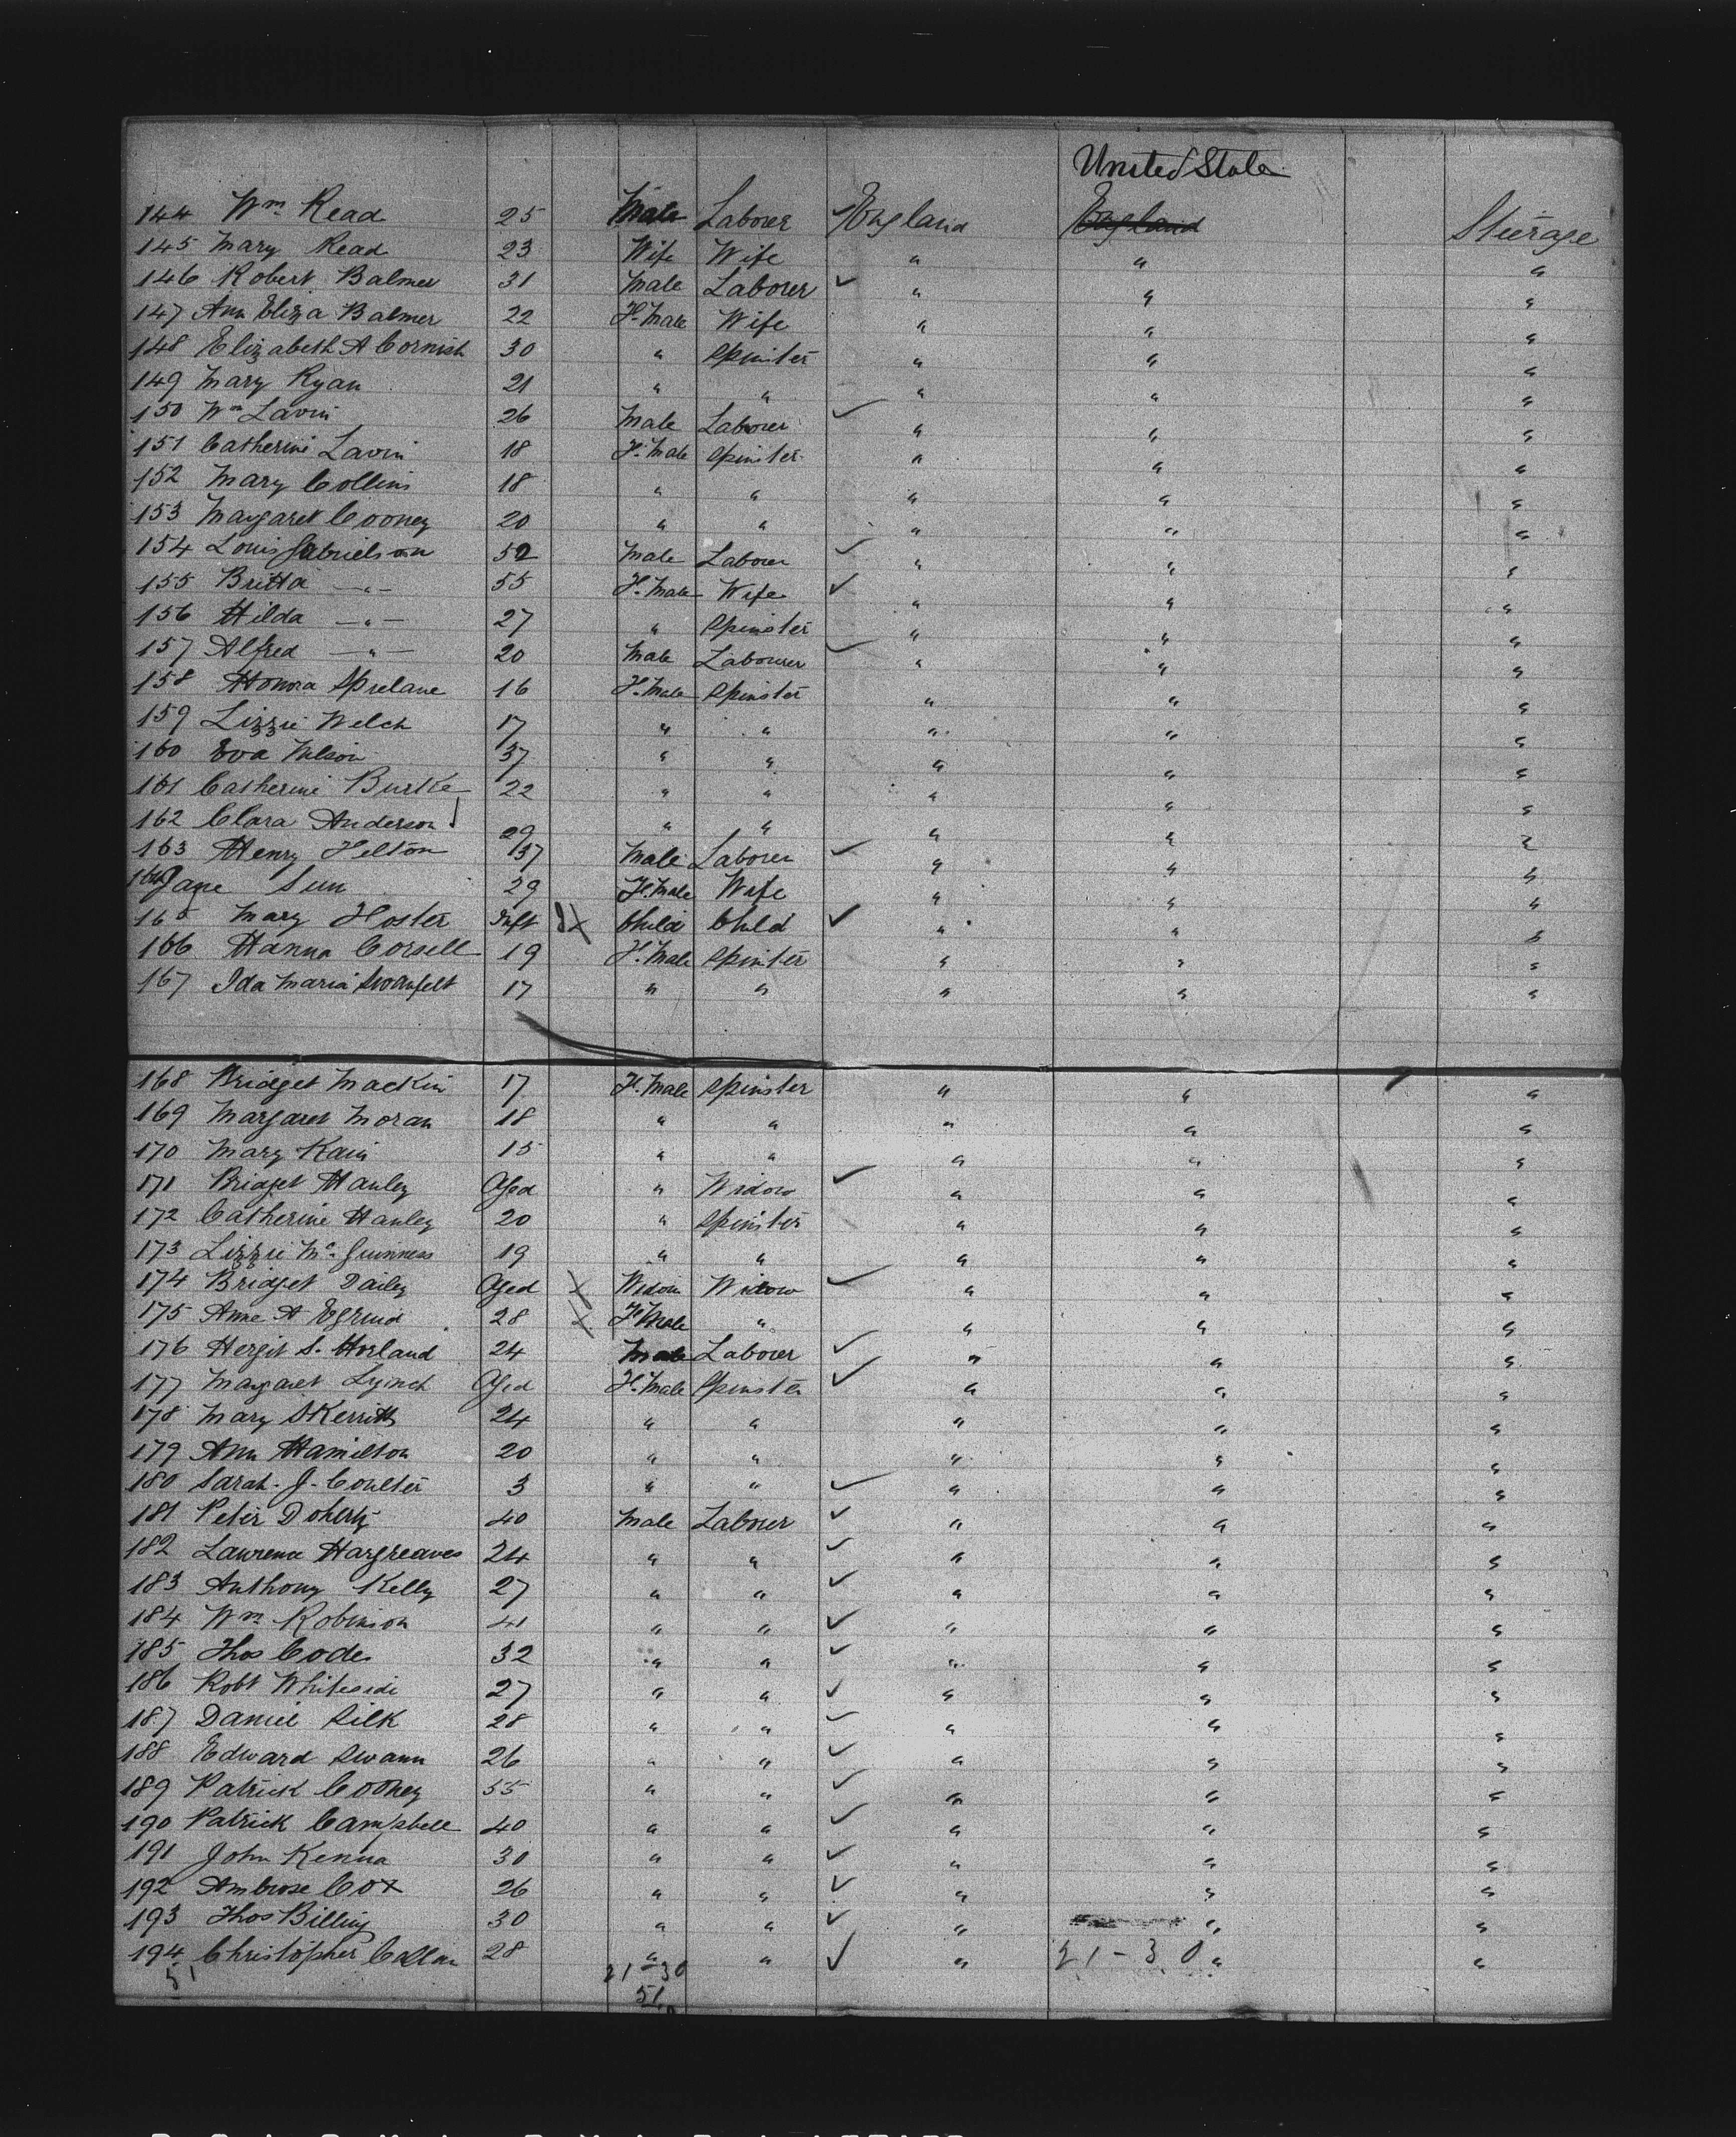 United State
144 Wm Read 25 Male Laborer ✓ England England Steerage
145 Mary Read 23 Wife Wife " " "
146 Robert Balmer 31 Male Laborer ✓ " " "
147 Ann Eliza Balmer 22 F.Male Wife " " "
148 Elizabeth A Cornish 30 " Spinster " " "
149 Mary Ryan 21 " " " " "
150 Wm Lavin 26 Male Laborer ✓ " " "
151 Catherine Lavin 18 F.Male Spinster " " "
152 Mary Collins 18 " " " " "
153 Margaret Cooney 20 " " " " "
154 Louis Gabrielson 52 Male Laborer ✓ " " "
155 Britta —"— 55 F.Male Wife ✓ " " "
156 Hilda —"— 27 " Spinster " " "
157 Alfred —"— 20 Male Labourer ✓ " " "
158 Honora 16 F.Male Spinster " " "
159 Lizzie Welch 17 " " " " "
160 Eva Nelson 37 " " " " "
161 Catherine Burke 22 " " " " "
162 Clara Anderson 29 " " " " "
163 Henry Felton 37 Male Laborer ✓ " " "
164 Jane 29 F.Male Wife " " "
165 Mary Foster Inft X Child Child ✓ " " "
166 Hanna Corsell 19 F.Male Spinster " " "
167 Ida Maria Swanfelt 17 " " " " "
168 Bridget Mackin 17 F.Male Spinster " " "
169 Margaret Moran 18 " " " " "
170 Mary Kain 15 " " " " "
171 Bridget Hanley Aged " Widow ✓ " " "
172 Catherine Hanley 20 " Spinster " " "
173 Lizzie Mc Guinness 19 " " " " "
174 Bridget Dailey Aged X Widow Widow ✓ " " "
175 Anne A 28 X F.Male " " " "
176 S. Horland 24 Male Laborer ✓ " " "
177 Margaret Lynch Aged F.Male Spinster ✓ " " "
178 Mary Skerritt 24 " " " " "
179 Ann Hamilton 20 " " " " "
180 Sarah J. Coulter 3 " " ✓ " " "
181 Peter Doherty 40 Male Labourer ✓ " " "
182 Lawrence Hargreaves 24 " " ✓ " " "
183 Anthony Kelly 27 " " ✓ " " "
184 Wm Robinson 41 " " ✓ " " "
185 Thos Code 32 " " ✓ " " "
186 Robt Whiteside 27 " " ✓ " " "
187 Daniel Silk 28 " " ✓ " " "
188 Edward Swann 26 " " ✓ " " "
189 Patrick Cooney 55 " " ✓ " " "
190 Patrick Campbell 40 " " ✓ " " "
191 John Kenna 30 " " ✓ " " "
192 Ambrose Cox 26 " " ✓ " " "
193 Thos Billing 30 " " ✓ " " "
194 Christopher Callan 28 " " ✓ " 21-30 " "
51 21-30
51